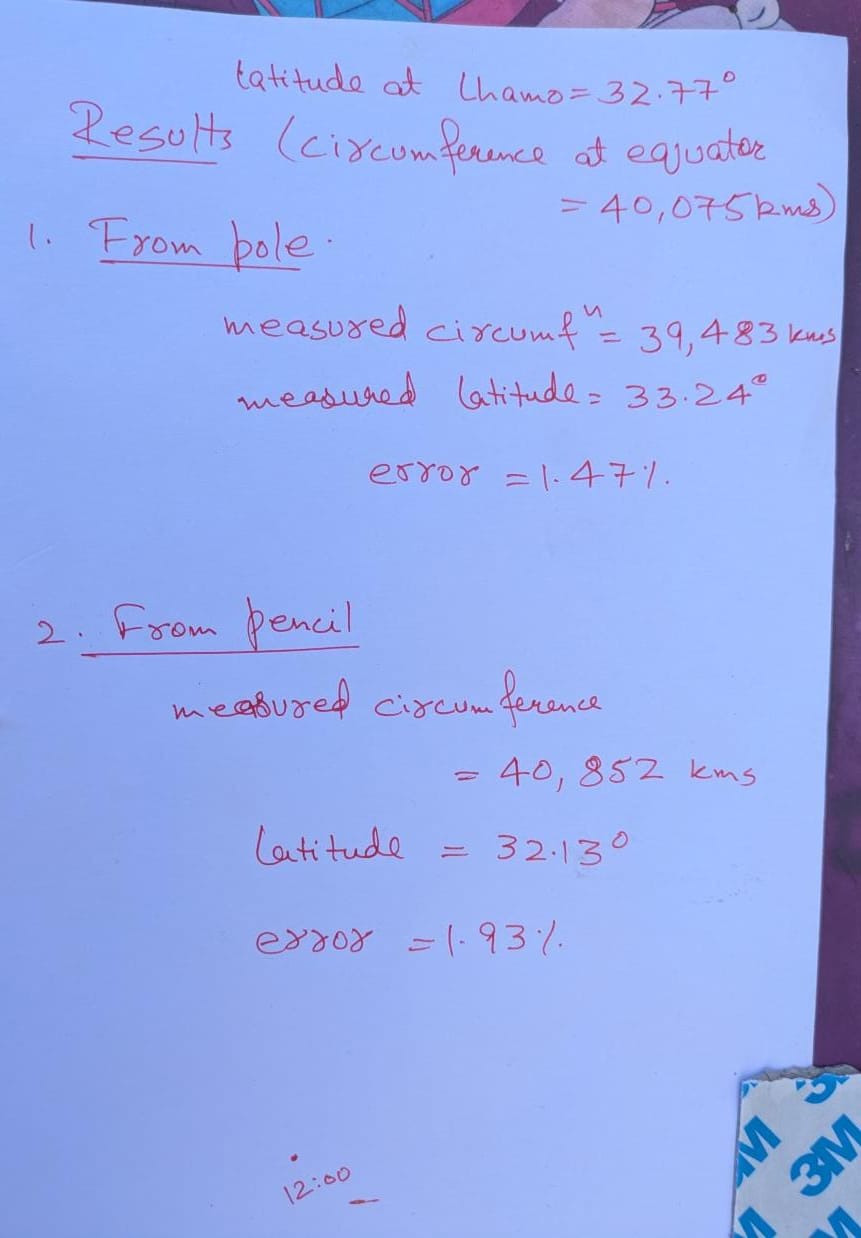 Latitude at Lhamo = 32.77°
Results (circumference at equator
= 40,075 kms)
1. From pole.
measured circumfⁿ = 39,483 kms
measured latitude = 33.24°
error = 1.47%.
2. From pencil
measured circumference
= 40,852 kms
latitude = 32.13°
error = 1.93%.
12:00
3M
3M